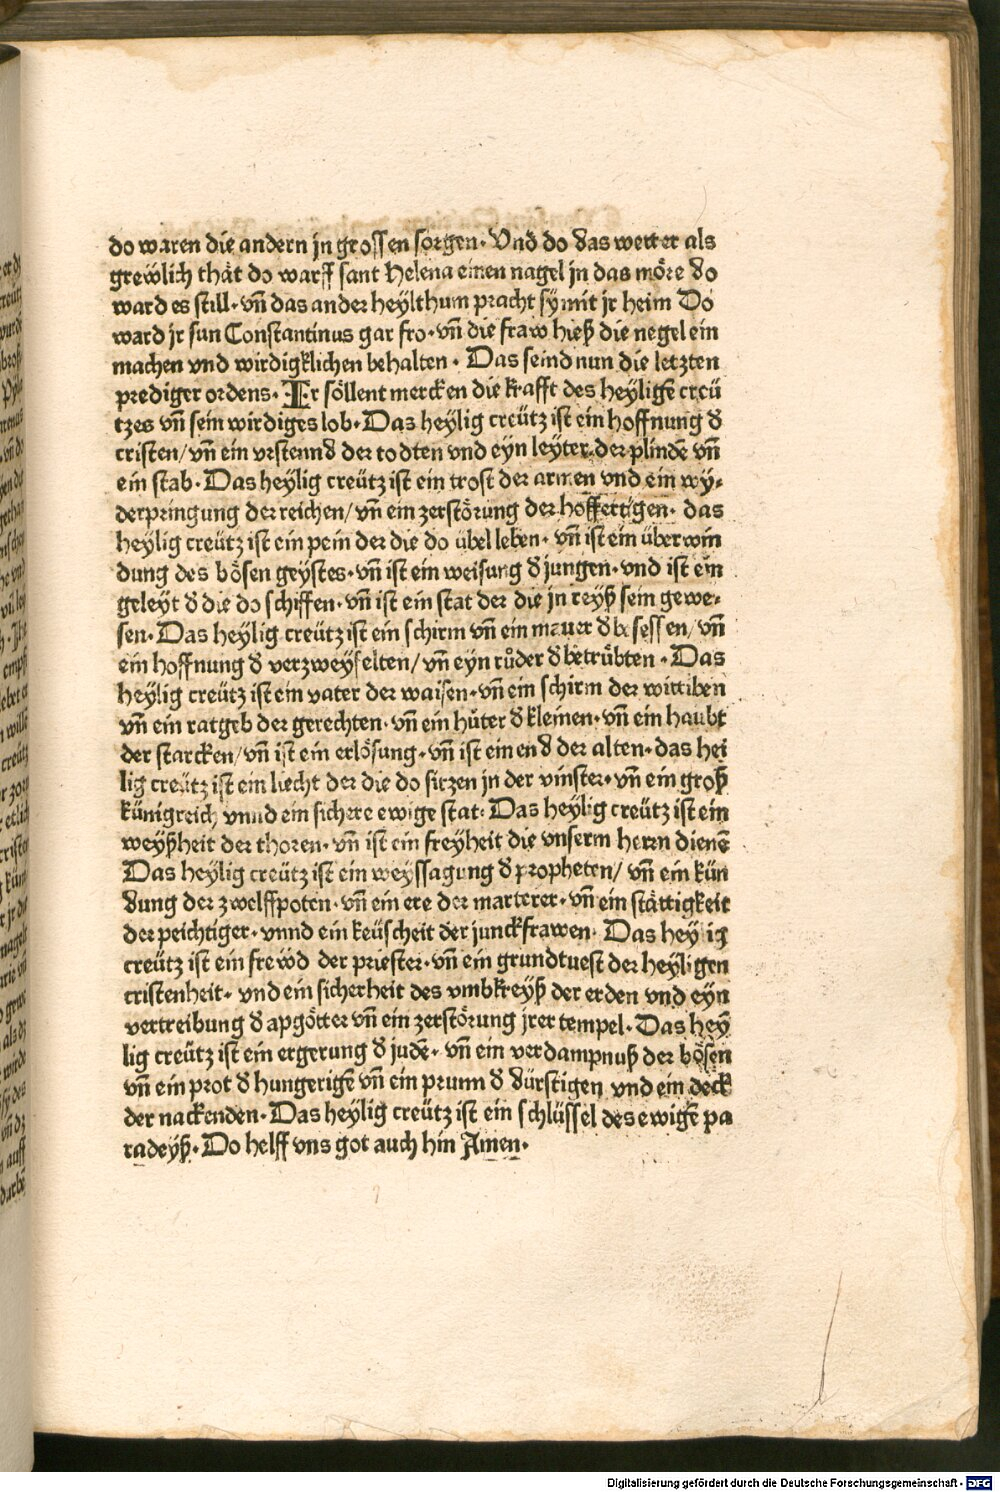 do waren die andern jn grossen sorgen. Vnd do das wetter als
grewlich thät do warff sant Helena einen nagel jn das möre do
ward es still. vñ das ander heylthum pracht sy mit jr heim Do
ward jr sun Constantinus gar fro. vñ die fraw hieß die negel ein
machen vnd wirdigklichen behalten. Das seind nun die letzten
prediger ordens. Ir söllent mercken die krafft des heyligē creü
tzes vñ sein wirdiges lob. Das heylig creütz ist ein hoffnung d̕
cristen/ vñ ein vrstennd̕ der todten vnd eyn leyter der plindē vñ
ein stab. Das heylig creütz ist ein trost der armen vnd ein wy-
derpringung der reichen/ vñ ein zerstörung der hoffertigen. das
heylig creütz ist ein pein der die do übel leben. vñ ist ein überwin
dung des bösen geystes. vñ ist ein weisung d̕ jungen. vnd ist ein
geleyt d̕ die do schiffen. vñ ist ein stat der die jn reyß sein gewe-
sen. Das heylig creütz ist ein schirm vñ ein mauer d̕ besessen/ vñ
ein hoffnung d̕ verzweyfelten/ vñ eyn růder d̕ betrübten. Das
heylig creütz ist ein vater der waisen. vñ ein schirm der wittiben
vñ ein ratgeb der gerechten. vñ ein hüter d̕ kleinen. vñ ein haubt
der starcken/ vñ ist ein erlösung. vñ ist ein end̕ der alten. das hei
lig creütz ist ein liecht der die do sitzen jn der vinster. vñ ein groß
künigreich vnnd ein sichere ewige stat: Das heylig creütz ist ein
weyßheit der thoren. vñ ist ein freyheit die vnserm herrn dienē
Das heylig creütz ist ein weyssagung d̕ propheten/ vñ ein kün
dung der zwelffpoten. vñ ein ere der marterer. vñ ein stättigkeit
der peichtiger. vnnd ein keüscheit der junckfrawen. Das heylig
creütz ist ein frewd der priester. vñ ein grundtuest der heyligen
cristenheit. vnd ein sicherheit des vmbkreyß der erden vnd eyn
vertreibung d̕ apgötter vñ ein zerstörung jrer tempel. Das hey
lig creütz ist ein ergerung d̕ judē. vñ ein verdampnuß der bösen
vñ ein prot d̕ hungerigē vñ ein prunn d̕ dürstigen vnd ein deck
der nackenden. Das heylig creütz ist ein schlüssel des ewigē pa
radeyß. Do helff vns got auch hin Amen.
Digitalisierung gefördert durch die Deutsche Forschungsgemeinschaft - DFG